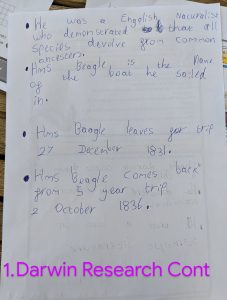 He was a Engolish Naturalist
who demonscrated that all
Species devolve from common
ancesters.
Hms Beagle is the Name
of the boat he sailed
in.
Hms Beagle leaves for trip
27 December 1831.
Hms Beagle comes back
from 5 year trip
2 October 1836.
1.Darwin Research Cont